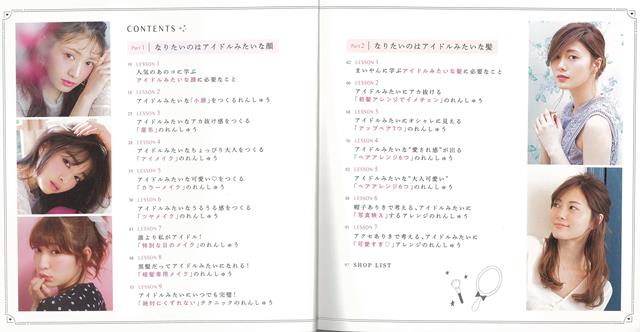 CONTENTS
Part1 なりたいのはアイドルみたいな顔
LESSON 1
人気のあのコに学ぶ
アイドルみたいな顔に必要なこと
LESSON 2
アイドルみたいな「小顔」をつくるれんしゅう
LESSON 3
アイドルみたいなアカ抜け感をつくる
「眉毛」のれんしゅう
LESSON 4
アイドルみたいなちょっぴり大人をつくる
「アイメイク」のれんしゅう
LESSON 5
アイドルみたいな可愛い♡をつくる
「カラーメイク」のれんしゅう
LESSON 6
アイドルみたいなうるうる感をつくる
「ツヤメイク」のれんしゅう
LESSON 7
誰より私がアイドル!
「特別な日のメイク」のれんしゅう
LESSON 8
黒髪だってアイドルみたいになれる!
「暗髪専用メイク」のれんしゅう
LESSON 9
アイドルみたいにいつでも完璧!
「絶対にくずれない」テクニックのれんしゅう
Part2 なりたいのはアイドルみたいな髪
LESSON 1
まいやんに学ぶアイドルみたいな髪に必要なこと
LESSON 2
アイドルみたいにアカ抜ける
「前髪アレンジでイメチェン」のれんしゅう
LESSON 3
アイドルみたいにオシャレに見える
「アップヘア7つ」のれんしゅう
LESSON 4
アイドルみたいな“愛され感”が出る
「ヘアアレンジ6つ」のれんしゅう
LESSON 5
アイドルみたいな“大人可愛い”
「ヘアアレンジ6つ」のれんしゅう
LESSON 6
帽子ありきで考える、アイドルみたいに
「写真映え」するアレンジのれんしゅう
LESSON 7
アクセありきで考える、アイドルみたいに
「可愛すぎ♡」アレンジのれんしゅう
SHOP LIST